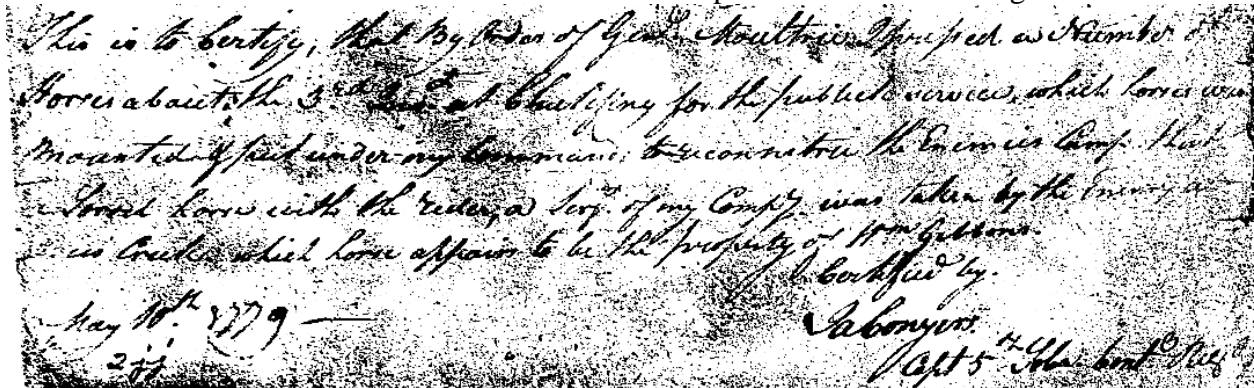 This is to Certify, that By Order of Genl. Moultrie I pressed a Number of
Horses about the 3rd at for the publick service, which horses was
mounted & put under my Command to reconnitre the Enemies Camp. that
a Sorrel horse with the rider, a Serjt. of my Compy. was taken by the Enemy at
Creek which horse appears to be the property of Wm Gibbons.
Certified by.
May 10th. 1779
Ja Conyers
Capt 5th